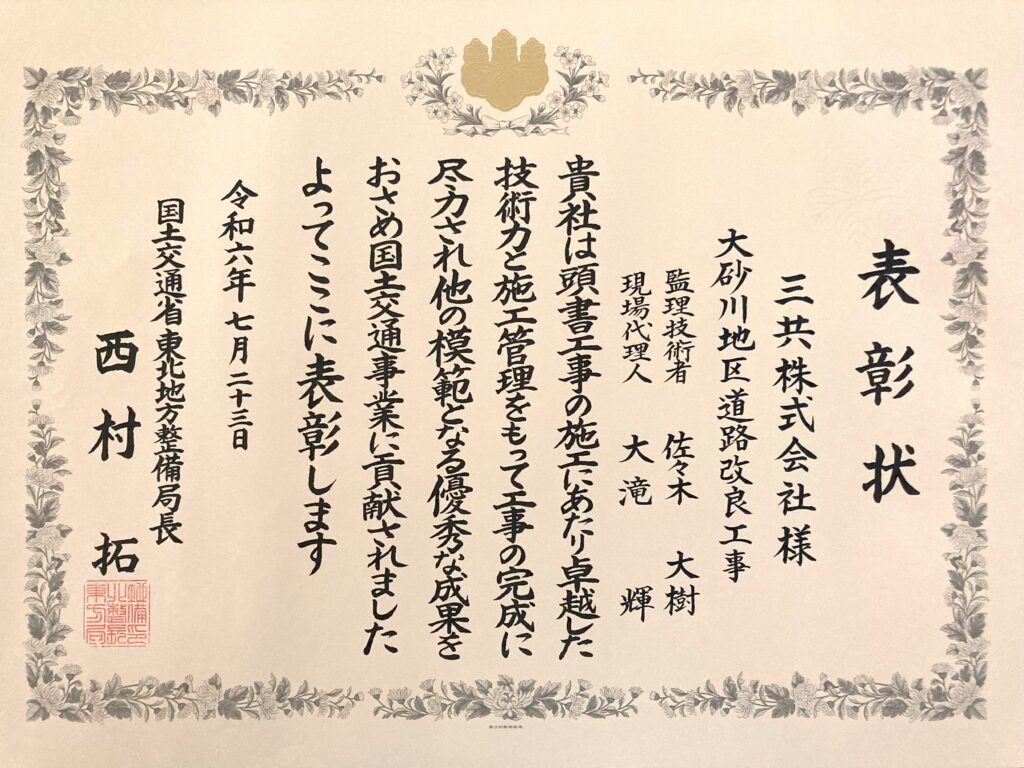 表彰状
三共株式会社様
大砂川地区道路改良工事
監理技術者 佐々木 大樹
現場代理人 大滝 輝
貴社は頭書工事の施工にあたり卓越した
技術力と施工管理をもって工事の完成に
尽力され他の模範となる優秀な成果を
おさめ国土交通事業に貢献されました
よってここに表彰します
令和六年七月二十三日
国土交通省東北地方整備局長
西村 拓